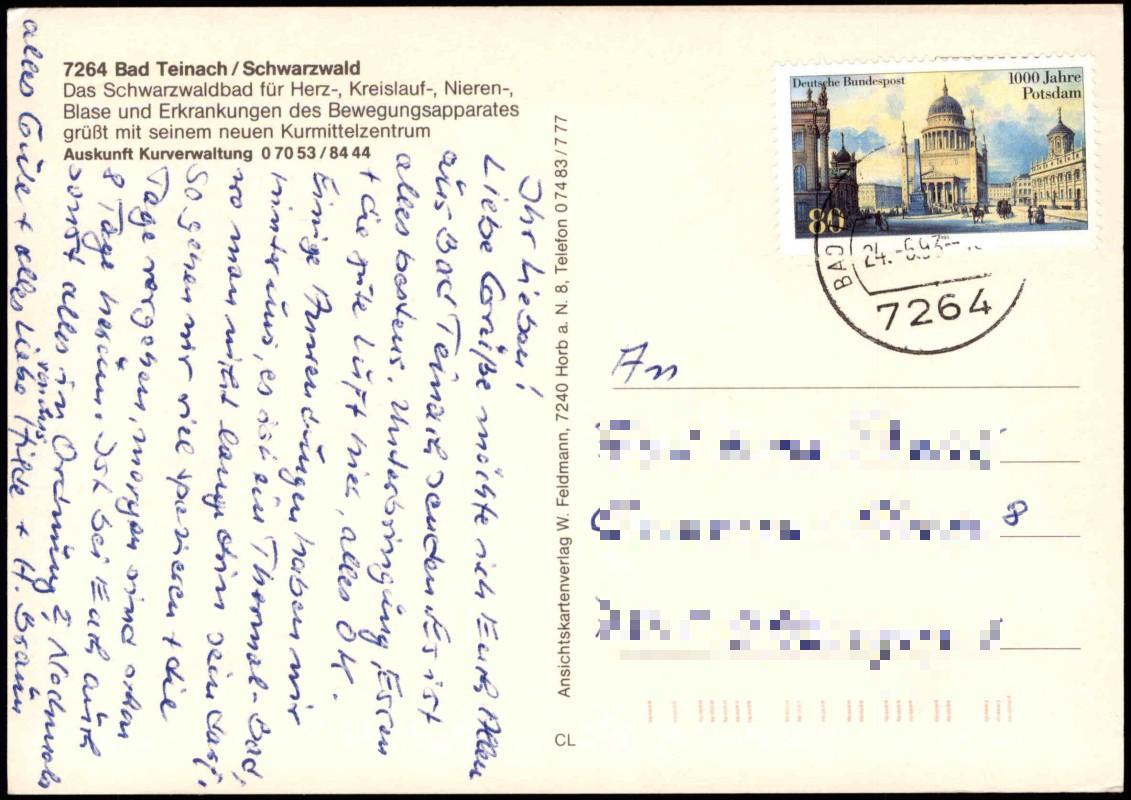 7264 Bad Teinach / Schwarzwald
Das Schwarzwaldbad für Herz-, Kreislauf-, Nieren-,
Blase und Erkrankungen des Bewegungsapparates
grüßt mit seinem neuen Kurmittelzentrum
Auskunft Kurverwaltung 0 70 53 / 84 44
Ihr Lieben!
Liebe Grüße möchte ich Euch Allen
aus Bad Teinach senden. Es ist
alles bestens. Unterbringung, Essen
+ die gute Luft hier, alles OK.
Einige Anwendungen haben wir
hinter uns, es ist ein Thermal-Bad,
wo man nicht lange drin sein darf,
So gehen wir viel spazieren + die
Tage vergehen, morgen sind schon
8 Tage herum. Ist bei Euch auch
sonst alles in Ordnung? Nochmals
alles Gute + alles Liebe Hilde + H. Braun
von uns
Ansichtskartenverlag W. Feldmann, 7240 Horb a. N. 8, Telefon 0 74 83 / 7 77
CL
Deutsche Bundespost
1000 Jahre
Potsdam
80
BAD
24.-6.93
7264
An
8